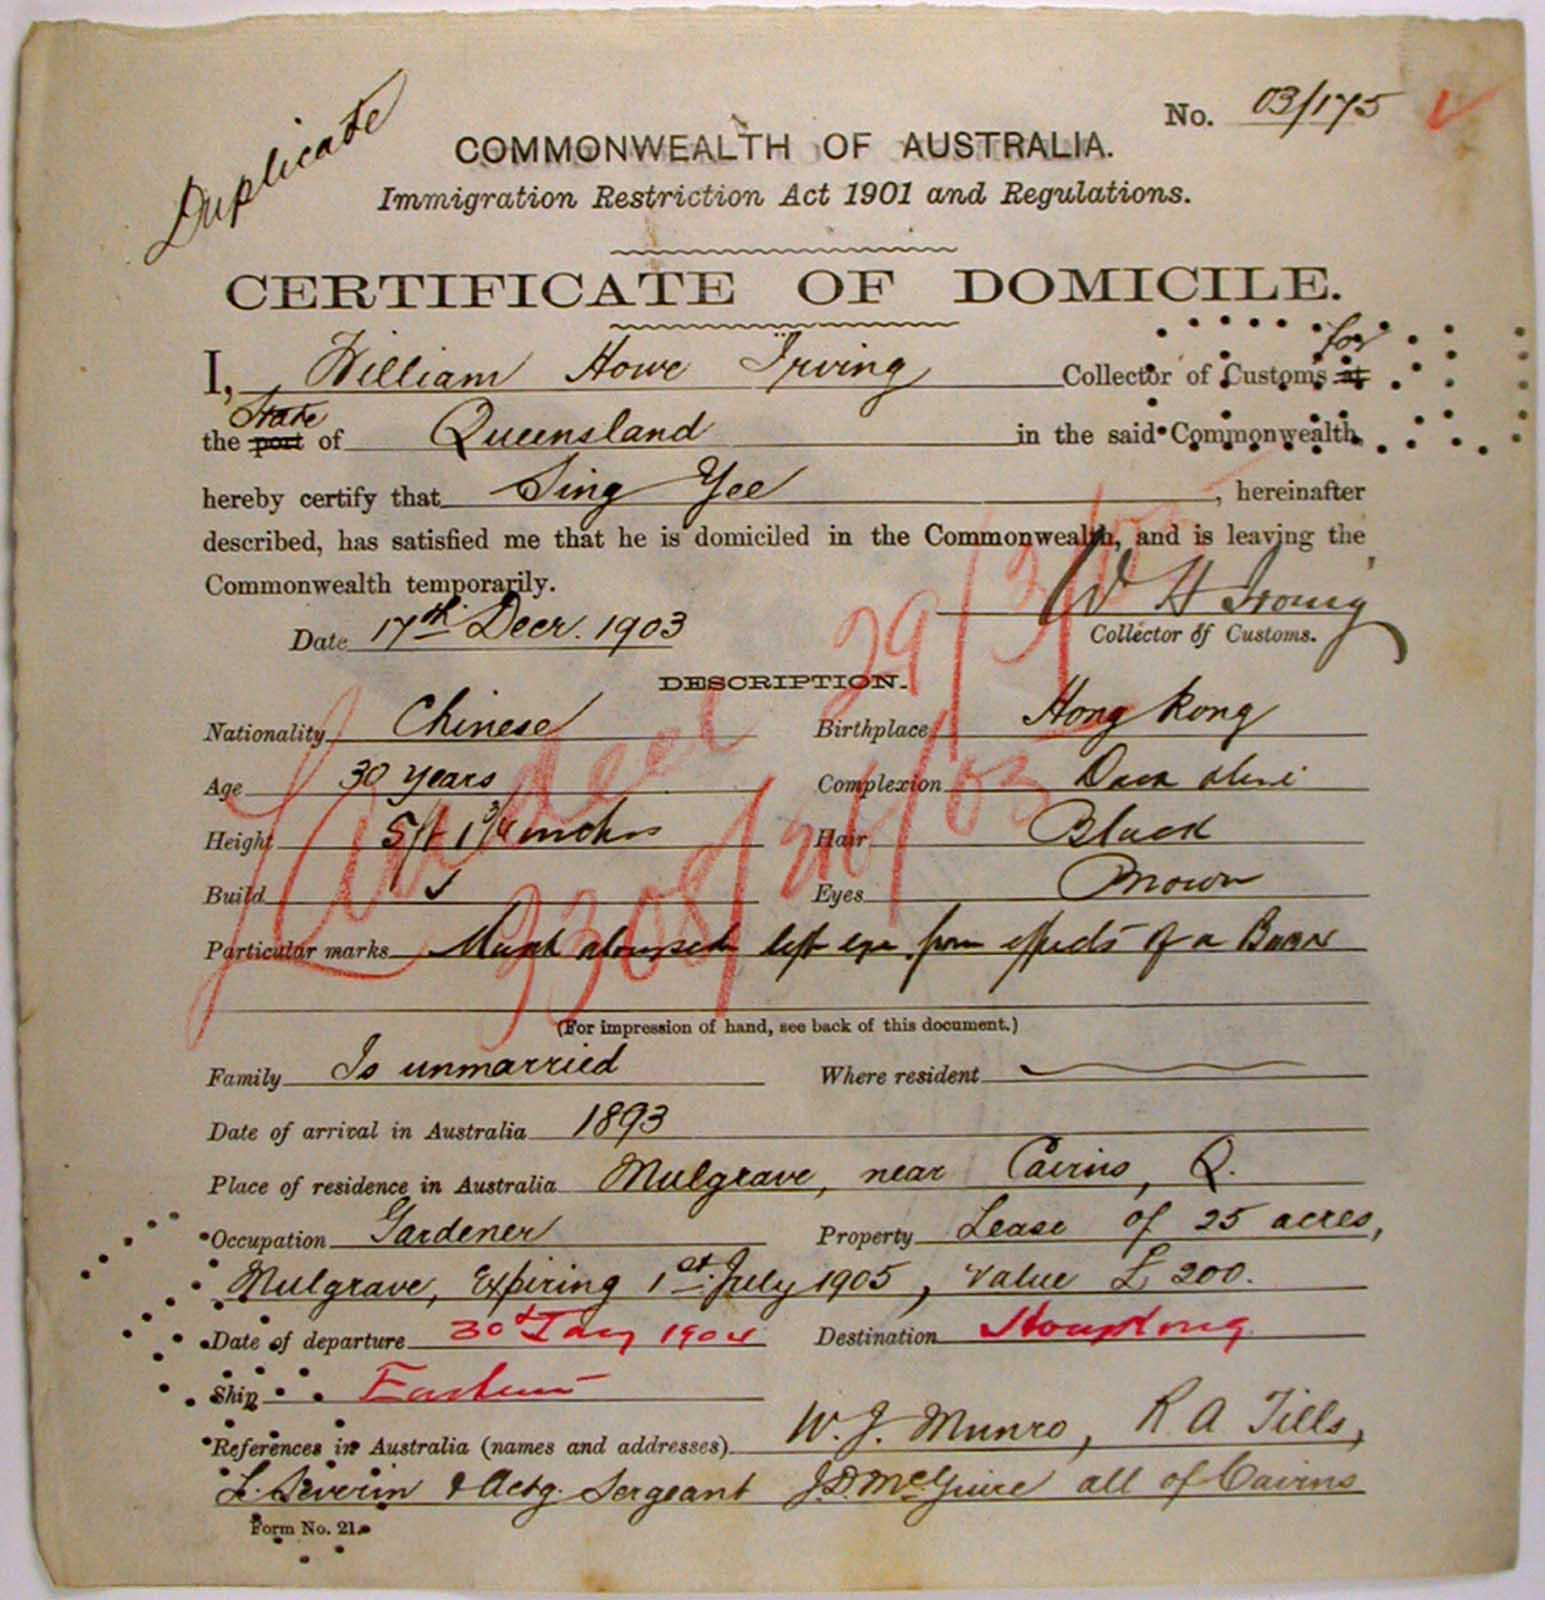 Duplicate
No. 03/175
COMMONWEALTH OF AUSTRALIA.
Immigration Restriction Act 1901 and Regulations.
CERTIFICATE OF DOMICILE.
for
I, William Howe Irving Collector of Customs at
State
the port of Queensland in the said Commonwealth
hereby certify that Sing Yee, hereinafter
described, has satisfied me that he is domiciled in the Commonwealth, and is leaving the
Commonwealth temporarily.
W H Irving
Date 17th Decr. 1903
Collector of Customs.
DESCRIPTION.
Nationality Chinese Birthplace Hong Kong
Age 30 years Complexion Dark
Height 5ft 1 3/4 inches Hair Black
Build Eyes Brown
Particular marks Mark left eye from effects of a
(For impression of hand, see back of this document.)
Family Is unmarried Where resident
Date of arrival in Australia 1893
Place of residence in Australia Mulgrave, near Cairns, Q.
Occupation Gardener Property Lease of 25 acres,
Mulgrave, Expiring 1st July 1905, Value £200.
Date of departure 30th Jany 1904 Destination Hongkong
Ship Eastern
References in Australia (names and addresses) W. J. Munro, R A Tills,
L. Severin & Actg. Sergeant J.D. McGuire all of Cairns
Form No. 21.